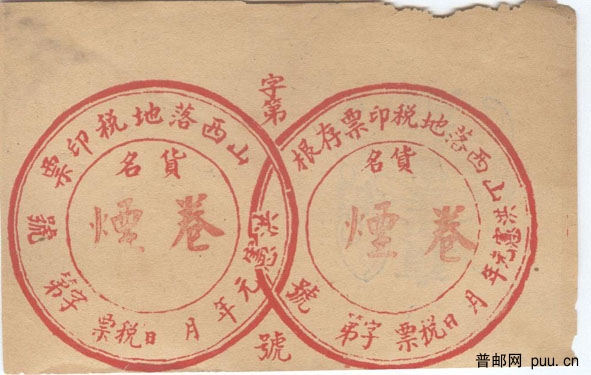 字第
號
山西落地税印票存根
貨名
卷煙
洪憲元年 月 日税票
字第 號
山西落地税印票
貨名
卷煙
洪憲元年 月 日税票
字第 號
普邮网 puu.cn